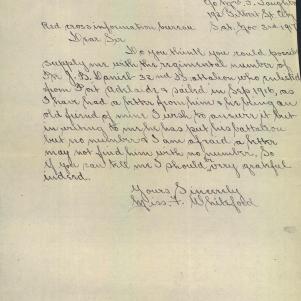 192 Gilbert St. City
Red cross information bureau Sat. Nov 3rd 1917
Dear Sir
Do you think you could possibly
supply me with the regimental number of
J. B. Daniel 32nd Battalion who enlisted
from Port Adelaide & sailed in Sep 1916, as
I have had a letter from him & he being an
old friend of mine I wish to answer it but
in writing to me he has put his battalion
but no number & I am afraid a letter
may not find him with no number, So
if you can tell me I should be very grateful
indeed.
Yours Sincerely
Miss. F. Whiteford